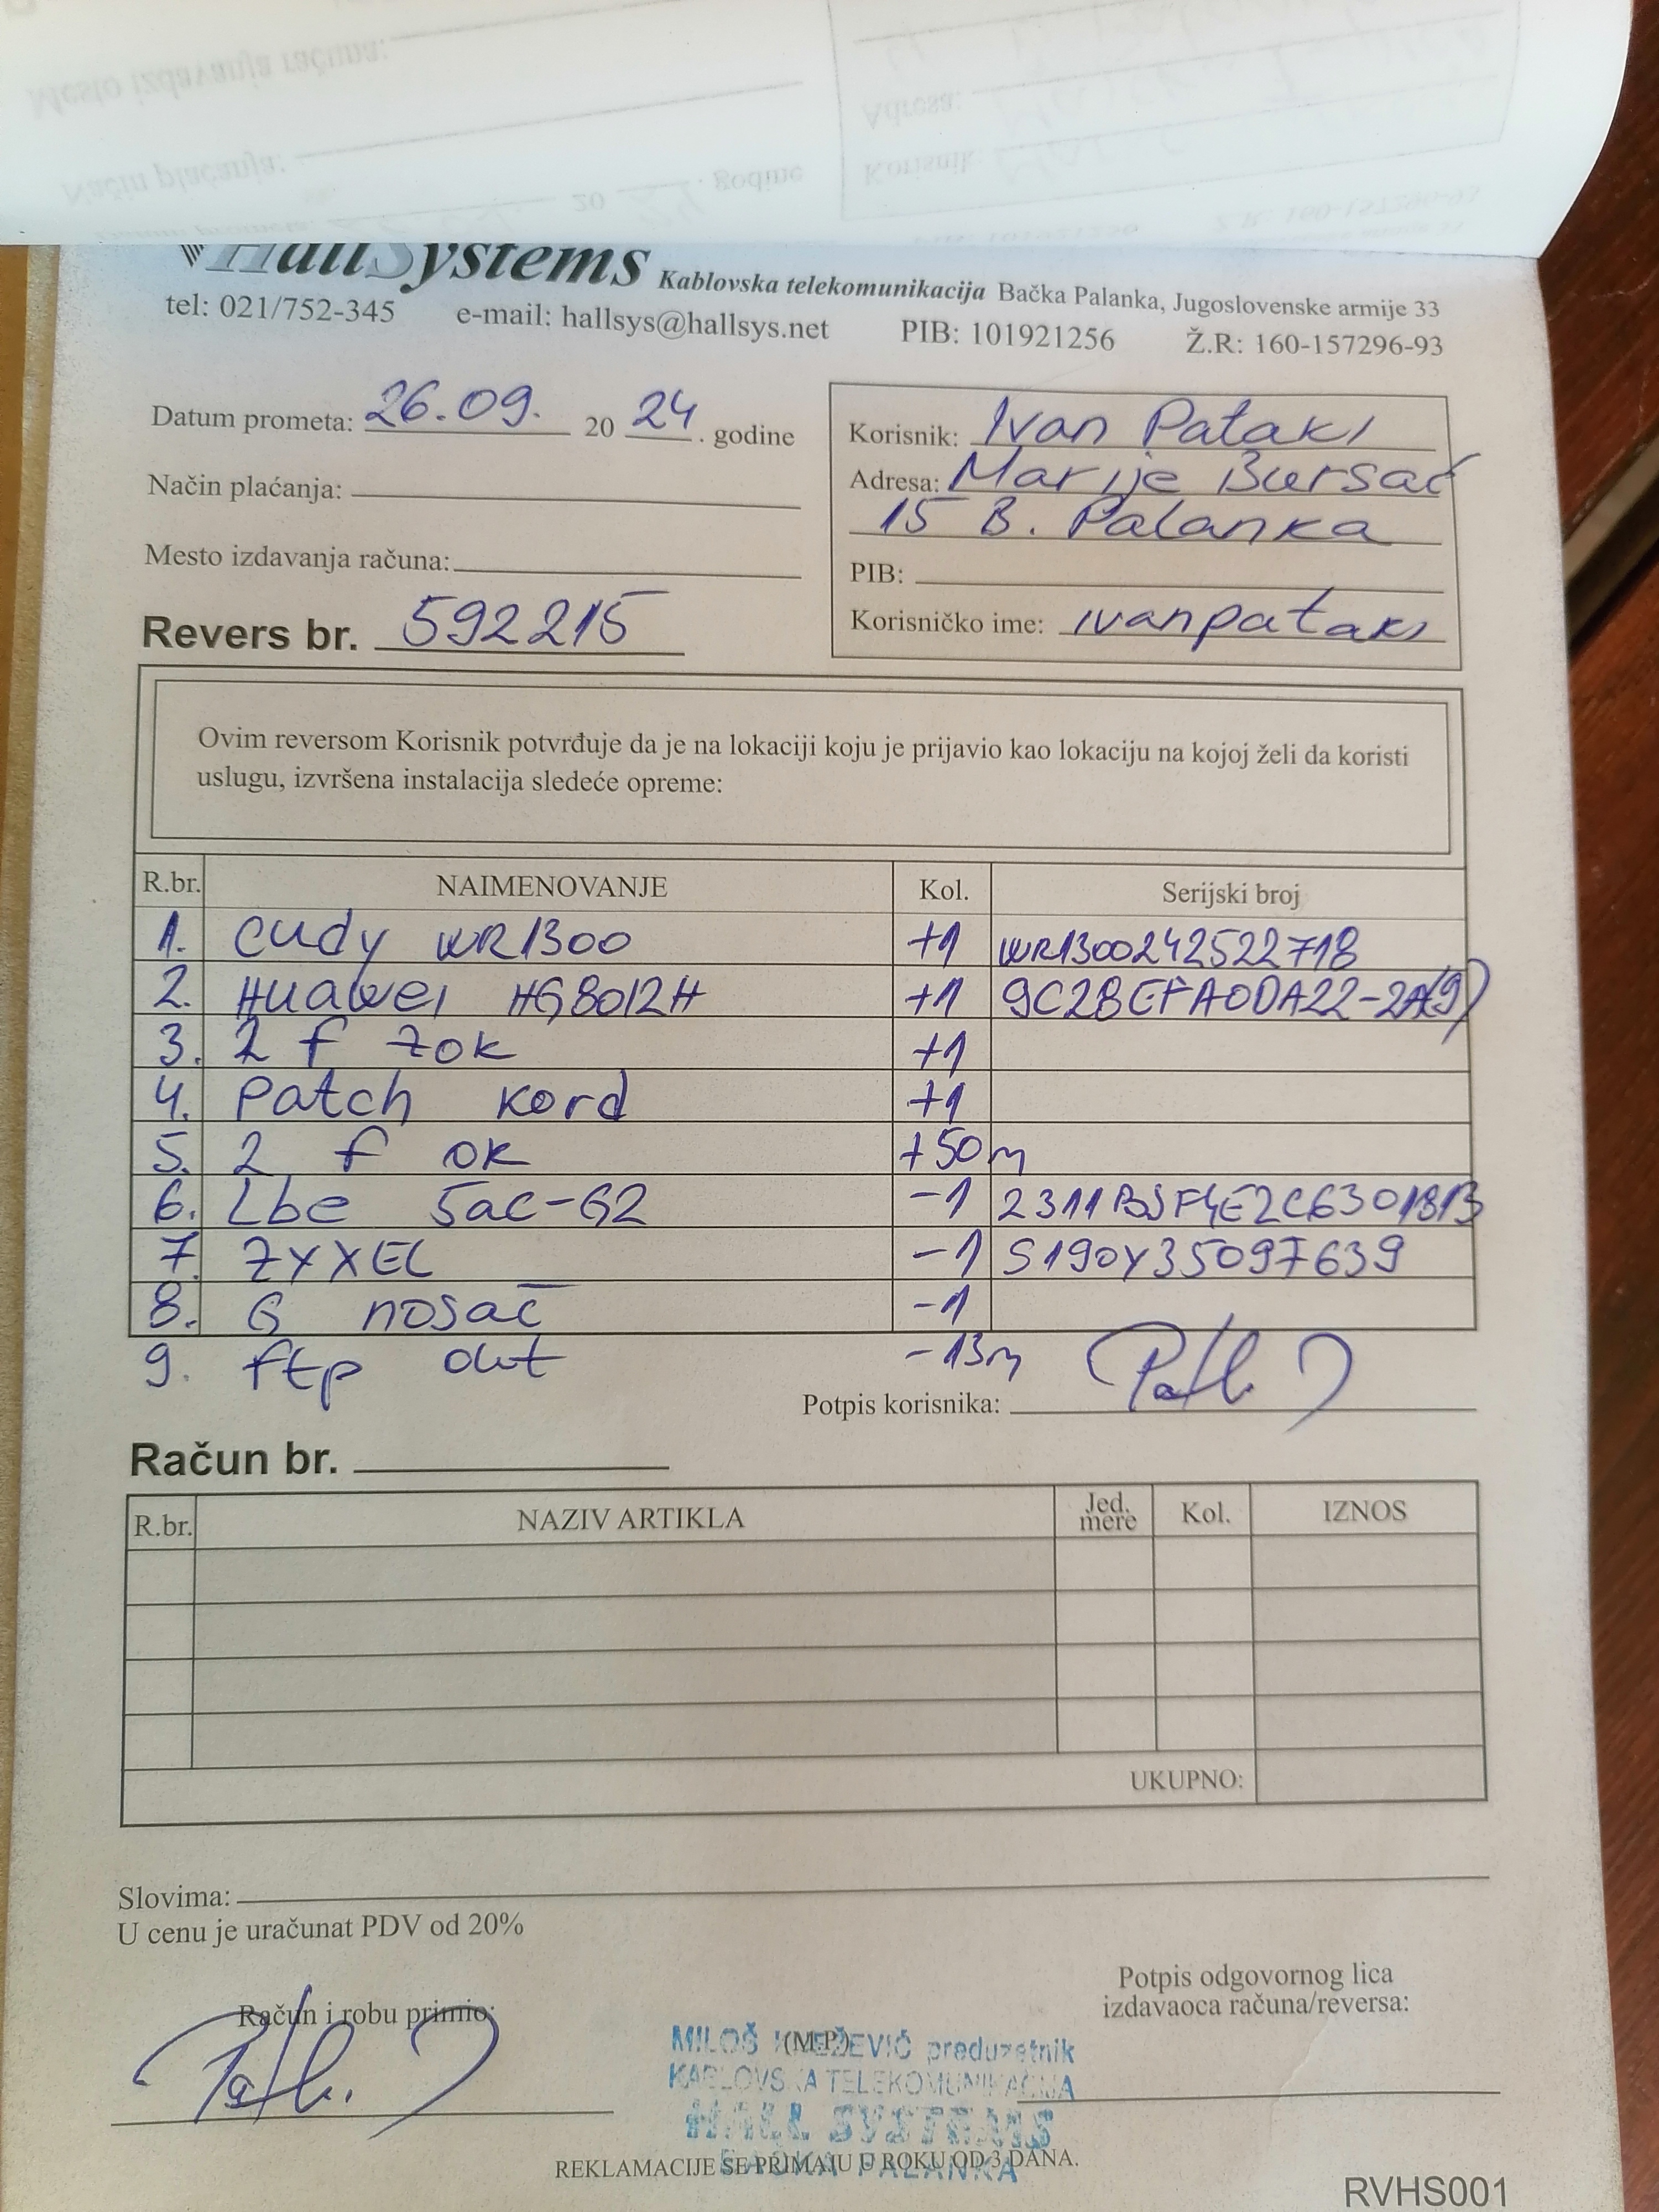 HallSystems Kablovska telekomunikacija Bačka Palanka, Jugoslovenske armije 33
tel: 021/752-345 e-mail: hallsys@hallsys.net PIB: 101921256 Ž.R: 160-157296-93
Datum prometa: 26.09. 2024. godine
Način plaćanja:
Mesto izdavanja računa:
Revers br. 592215
Korisnik: Ivan Pataki
Adresa: Marije Bursać
15 B. Palanka
PIB:
Korisničko ime: ivanpataki
Ovim reversom Korisnik potvrđuje da je na lokaciji koju je prijavio kao lokaciju na kojoj želi da koristi
uslugu, izvršena instalacija sledeće opreme:
R.br. NAIMENOVANJE Kol. Serijski broj
1. Cudy WR1300 +1 WR1300242522718
2. Huawei HG8012H +1 9C2BEFA0DA22-2A(9)
3. 2 f zok +1
4. Patch kord +1
5. 2 f ok +50m
6. Lbe 5ac-G2 -1
7. ZYXEL -1 S190Y35097639
8. G nosač -1
9. ftp out -13m
Potpis korisnika:
Račun br.
R.br. NAZIV ARTIKLA Jed. mere Kol. IZNOS
UKUPNO:
Slovima:
U cenu je uračunat PDV od 20%
Račun i robu primio:
(M.P.)
Potpis odgovornog lica
izdavaoca računa/reversa:
MILOŠ preduzetnik
KABLOVSKA TELEKOMUNIKACIJA
HALL SYSTEMS
BAČKA PALANKA
REKLAMACIJE SE PRIMAJU U ROKU OD 3 DANA.
RVHS001